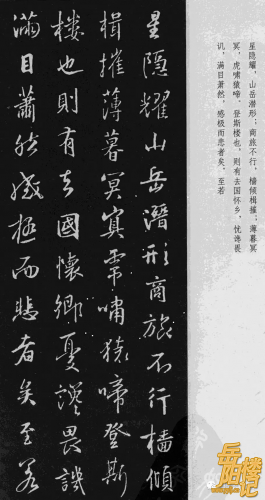 星隐耀，山岳潜形；商旅不行，樯倾楫摧；薄暮冥
冥，虎啸猿啼，登斯楼也，则有去国怀乡，忧谗畏
讥，满目萧然，感极而悲者矣，至若
星隱耀山岳潛形商旅不行檣傾
楫摧薄暮冥冥虎嘯猿啼登斯
樓也則有去國懷鄉憂讒畏譏
滿目蕭然感極而悲者矣至若
岳阳楼记